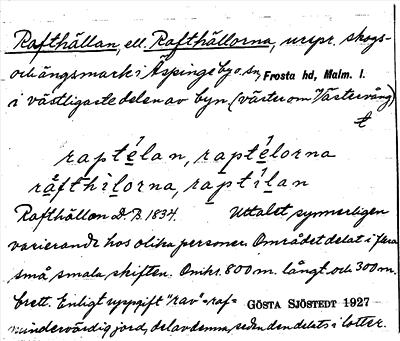 Rafthällan, ell. Rafthällorna, urspr. skogs-
och ängsmark i Äspinge by o. sn, Frosta hd, Malm. l.
i västligaste delen av byn, (väster om Västervång)
raptélan, raptélorna
råfthìlorna, raptílan
Rafthällan L.B. 1834. Uttalet synnerligen
varierande hos olika personer. Området delat i flera
små smala skiften. Omkr. 800 m. långt och 300 m.
brett. Enligt uppgift "rav" = raf =
GÖSTA SJÖSTEDT 1927
mindervärdig jord, del av denna, sedan den delats i lotter.